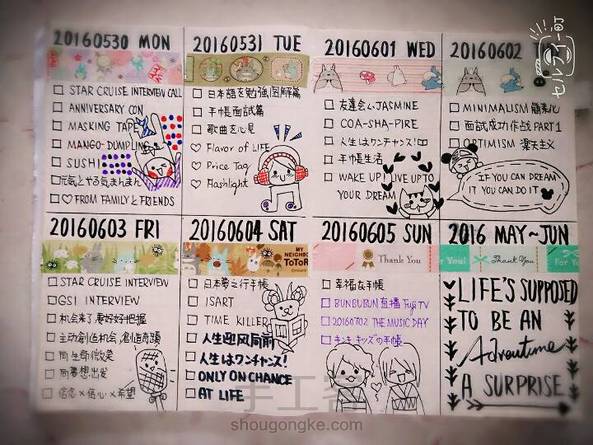 20160530 MON
STAR CRUISE INTERVIEW CALL
ANNIVERSARY CON
MASKING TAPE
MANGO-DUMPLING
SUSHI
元気とやる気まんまん
♡FROM FAMILY AND FRIENDS
20160531 TUE
日本語を勉強図解篇
手帳面試篇
歌曲を
Flavor of LIFE
Price Tag
Flashlight
20160601 WED
友達会いJASMINE
COA-SHA-PIRE
人生はワンチャンス!
手帳生活
WAKE UP LIVE UP TO
YOUR DREAM
20160602
MINIMALISM
面試成功作战 PART1
OPTIMISM 楽天主义
IF YOU CAN DREAM
IT YOU CAN DO IT
20160603 FRI
STAR CRUISE INTERVIEW
GSI INTERVIEW
机会来了要好好把握
主动创造机会,創造奇蹟
向生命微笑
向夢想出發
信念×信心×希望
20160604 SAT
MY NEIGHBOR
TOTORO
日本夢之行手帳
1SART
TIME KILLER
人生迎风向前
人生はワンチャンス!
ONLY ON CHANCE
AT LIFE
20160605 SUN
Thank You
幸福な手帳
BUNBUBUN 直播 Fuji TV
20160702 THE MUSIC DAY
キンキキッズの手帳
2016 MAY~JUN
You!
Thank You
For Yo
LIFE'S SUPPOSED
TO BE AN
Adventure
A SURPRISE
手工客
shougongke.com